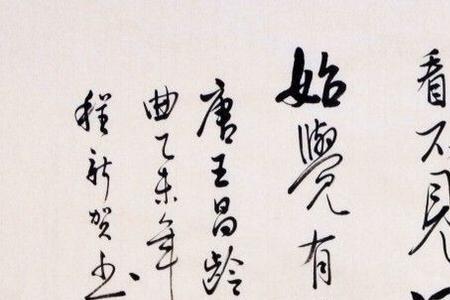 看不見
始覺有
唐王昌齡
曲乙未年
程新賀书